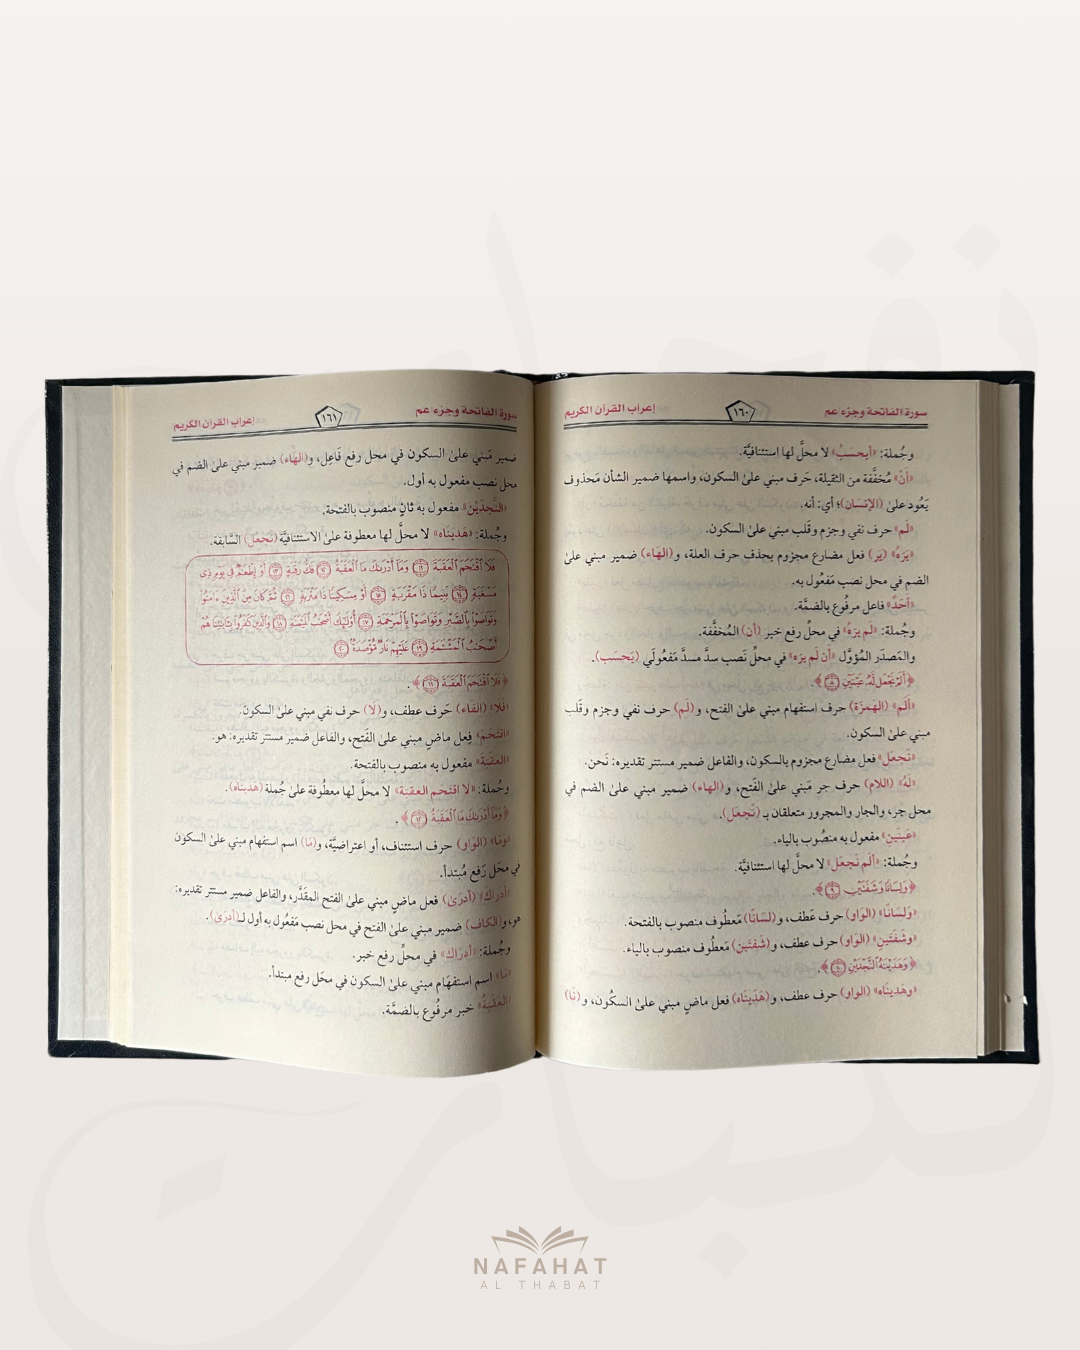 سورة الفاتحة وجزء عم
١٦٠
إعراب القرآن الكريم
وجُملة: «أيحسَبُ» لا محلَّ لها استئنافيَّة.
«أنْ» مُخفَّفة من الثقيلة، حَرف مبني علىٰ السكون، واسمها ضمير الشأن مَحذوف
يَعُود علىٰ (الإنسَان)؛ أي: أنه.
«لَم» حرف نفي وجزم وقَلب مبني علىٰ السكون.
«يَرَهُ» (يَر) فعل مضارع مجزوم بحذف حرف العلة، و(الهَاء) ضمير مبني علىٰ
الضم في محل نصب مَفعُول به.
«أحَدٌ» فاعل مرفُوع بالضمَّة.
وجُملة: «لَم يرَهُ» في محلِّ رفع خبر (أن) المُخفَّفة.
والمَصدَر المُؤوَّل «أن لَم يره» في محلِّ نَصب سدَّ مسدَّ مَفعُولَي (يَحسَب).
﴿أَلَمْ نَجْعَل لَّهُۥ عَيْنَيْنِ ٨﴾.
«ألَم» (الهَمزَة) حرف استفهام مبني علىٰ الفتح، و(لَم) حرف نفي وجزم وقَلْب
مبني علىٰ السكون.
«نَجعَل» فعل مضارع مجزوم بالسكون، والفاعل ضمير مستتر تقديره: نَحن.
«لَهُ» (اللام) حرف جر مَبني علىٰ الفَتح، و(الهاء) ضمير مبني علىٰ الضم في
محل جر، والجار والمجرور متعلقان بـ (نَجعَل).
«عَينَينِ» مفعول به منصُوب بالياء.
وجُملة: «ألَم نَجعَل» لا محلَّ لها استئنافيَّة.
﴿وَلِسَانًا وَشَفَتَيْنِ ٩﴾.
«وَلسَانًا» (الوَاو) حرف عَطف، و(لسَانًا) مَعطُوف منصوب بالفتحة.
«وشَفَتَينِ» (الوَاو) حرف عطف، و(شَفَتَين) مَعطُوف منصوب بالياء.
﴿وَهَدَيْنَٰهُ ٱلنَّجْدَيْنِ ١٠﴾.
«وهَدينَاه» (الوَاو) حرف عطف، و(هَدَينَاه) فعل ماضٍ مبني علىٰ السكُون، و(نَا)
سورة الفاتحة وجزء عم
١٦١
إعراب القرآن الكريم
ضمير مَبني علىٰ السكون في محل رفع فَاعِل، و(الهَاء) ضمير مبني علىٰ الضم في
محل نصب مفعول به أول.
«النَّجدَيْن» مفعول به ثانٍ منصوب بالفتحة.
وجُملة: «هَدينَاه» لا محلَّ لها معطوفة علىٰ الاستئنافيَّة (نَجعَل) السَّابقة.
فَلَا ٱقْتَحَمَ ٱلْعَقَبَةَ ١١ وَمَآ أَدْرَىٰكَ مَا ٱلْعَقَبَةُ ١٢ فَكُّ رَقَبَةٍ ١٣ أَوْ إِطْعَٰمٌ فِى يَوْمٍ ذِى
مَسْغَبَةٍ ١٤ يَتِيمًا ذَا مَقْرَبَةٍ ١٥ أَوْ مِسْكِينًا ذَا مَتْرَبَةٍ ١٦ ثُمَّ كَانَ مِنَ ٱلَّذِينَ ءَامَنُوا۟
وَتَوَاصَوْا۟ بِٱلصَّبْرِ وَتَوَاصَوْا۟ بِٱلْمَرْحَمَةِ ١٧ أُو۟لَٰٓئِكَ أَصْحَٰبُ ٱلْمَيْمَنَةِ ١٨ وَٱلَّذِينَ كَفَرُوا۟ بِـَٔايَٰتِنَا هُمْ
أَصْحَٰبُ ٱلْمَشْـَٔمَةِ ١٩ عَلَيْهِمْ نَارٌ مُّؤْصَدَةٌۢ ٢٠
﴿فَلَا ٱقْتَحَمَ ٱلْعَقَبَةَ ١١﴾.
«فلا» (الفاء) حَرف عطف، و(لَا) حرف نفي مبني علىٰ السكون.
«اقتَحَم» فِعل ماضٍ مبني علىٰ الفَتح، والفاعل ضمير مستتر تقديره: هو.
«العقبَة» مفعول به منصوب بالفتحة.
وجُملة: «لا اقتحَم العقبَة» لا محلَّ لها معطُوفة علىٰ جُملة (هَديناه).
﴿وَمَآ أَدْرَىٰكَ مَا ٱلْعَقَبَةُ ١٢﴾.
«وَمَا» (الوَاو) حرف استئناف، أو اعتراضيَّة، و(مَا) اسم استفهام مبني علىٰ السكون
في محَل رَفع مُبتدأ.
«أدراك» (أدرَىٰ) فعل ماضٍ مبني علىٰ الفتح المقدَّر، والفاعل ضمير مستتر تقديره:
هو، و(الكَاف) ضمير مبني علىٰ الفتح في محل نصب مَفعُول به أول لـ(أدرَىٰ).
وجُملة: «أدرَاك» في محلِّ رفع خبر.
«مَا» اسم استفهَام مبني علىٰ السكون في محَل رفع مبتدأ.
«العقبَةُ» خبر مرفُوع بالضمَّة.
NAFAHAT
AL THABAT